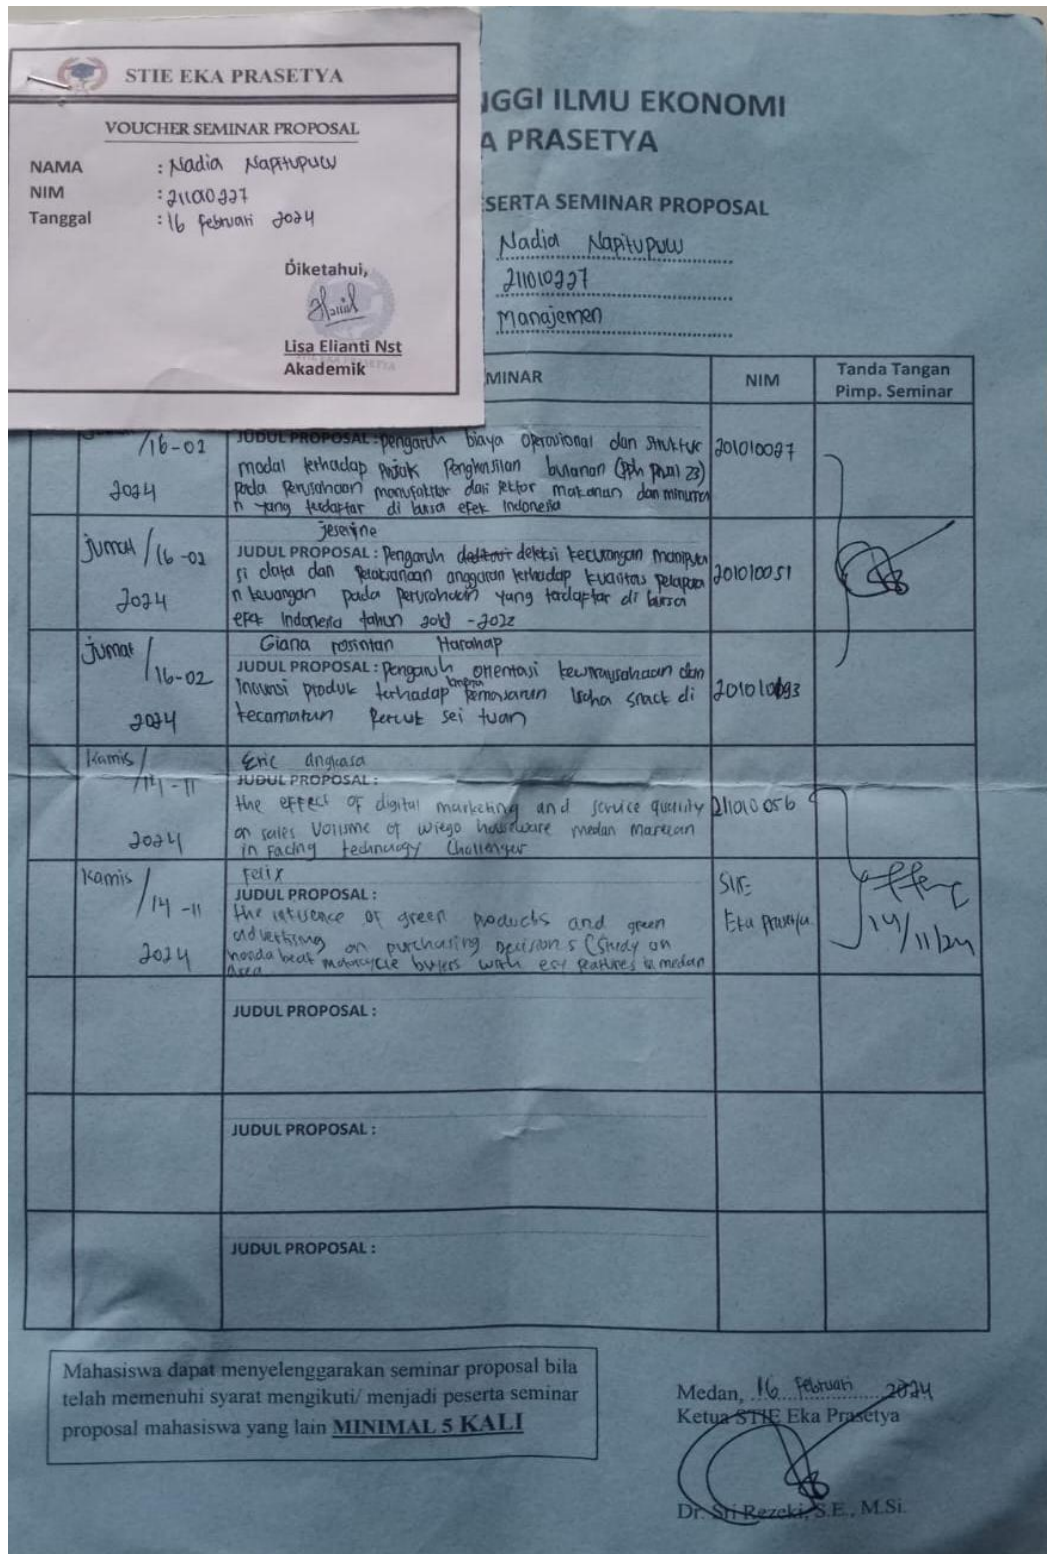 STIE EKA PRASETYA
VOUCHER SEMINAR PROPOSAL
NAMA : Nadia Napitupulu
NIM : 211010227
Tanggal : 16 Februari 2024
Diketahui,
Lisa Elianti Nst
Akademik
NGGI ILMU EKONOMI
A PRASETYA
SERTA SEMINAR PROPOSAL
Nadia Napitupulu
211010227
Manajemen
MINAR NIM Tanda Tangan
Pimp. Seminar
/16-02
2024
JUDUL PROPOSAL : Pengaruh biaya operasional dan struktur
modal terhadap Pajak Penghasilan bulanan (Pph Pasal 23)
pada Perusahaan manufaktur dari sektor makanan dan minuma
n yang terdaftar di bursa efek Indonesia
201010027
Jumat /16-02
2024
JUDUL PROPOSAL : Pengaruh deteksi kecurangan manipula
si data dan Pelaksanaan anggaran terhadap kualitas pelapora
n keuangan pada perusahaan yang terdaftar di bursa
efek Indonesia tahun 2018 -2022
201010051
Jumat /16-02
2024
Giana rosintan Harahap
JUDUL PROPOSAL : Pengaruh orientasi kewirausahaan dan
Inovasi produk terhadap kinerja Pemasaran Usaha snack di
kecamatan Percut sei tuan
Kamis /14-11
2024
Eric angkasa
JUDUL PROPOSAL :
the effect of digital marketing and service quality
on sales Volume of Wiego hardware medan Marelan
in Facing technology Challenges
211010056
Kamis /14-11
2024
Felix
JUDUL PROPOSAL :
the influence of green products and green
advertising on purchasing Decisions (Study on
honda beat motorcycle buyers with esp features in medan
Area
STIE
Eka Prasetya
14/11/24
JUDUL PROPOSAL :
JUDUL PROPOSAL :
JUDUL PROPOSAL :
Mahasiswa dapat menyelenggarakan seminar proposal bila
telah memenuhi syarat mengikuti/ menjadi peserta seminar
proposal mahasiswa yang lain MINIMAL 5 KALI
Medan, 16 Februari 2024
Ketua STIE Eka Prasetya
Dr. Sri Rezeki, S.E., M.Si.